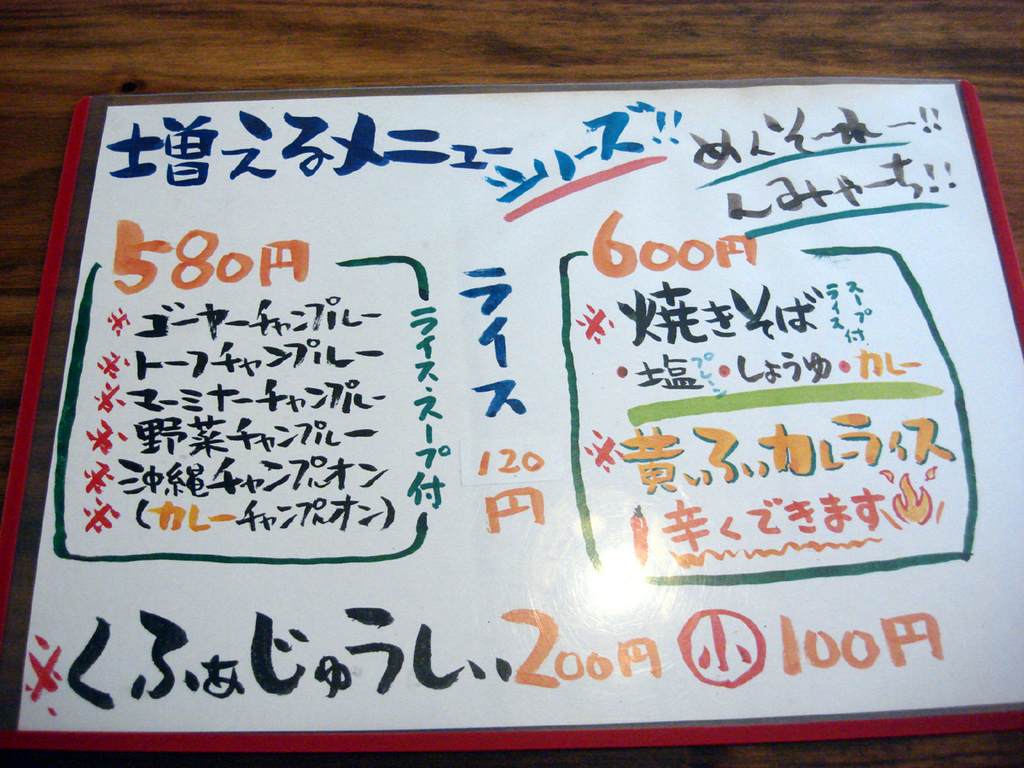 増えるメニューシリーズ!!
めんそーれー!!
んみゃーち!!
580円
※ゴーヤーチャンプルー
※トーフチャンプルー
※マーミナーチャンプルー
※野菜チャンプルー
※沖縄チャンプルオン
※(カレーチャンプルオン)
ライス・スープ付
ライス
120
円
600円
※焼きそば
スープ付
ライス
・塩プレーン・しょうゆ・カレー
※黄いろいカレーライス
辛くできます
※くふぁじゅうしぃ200円 小 100円